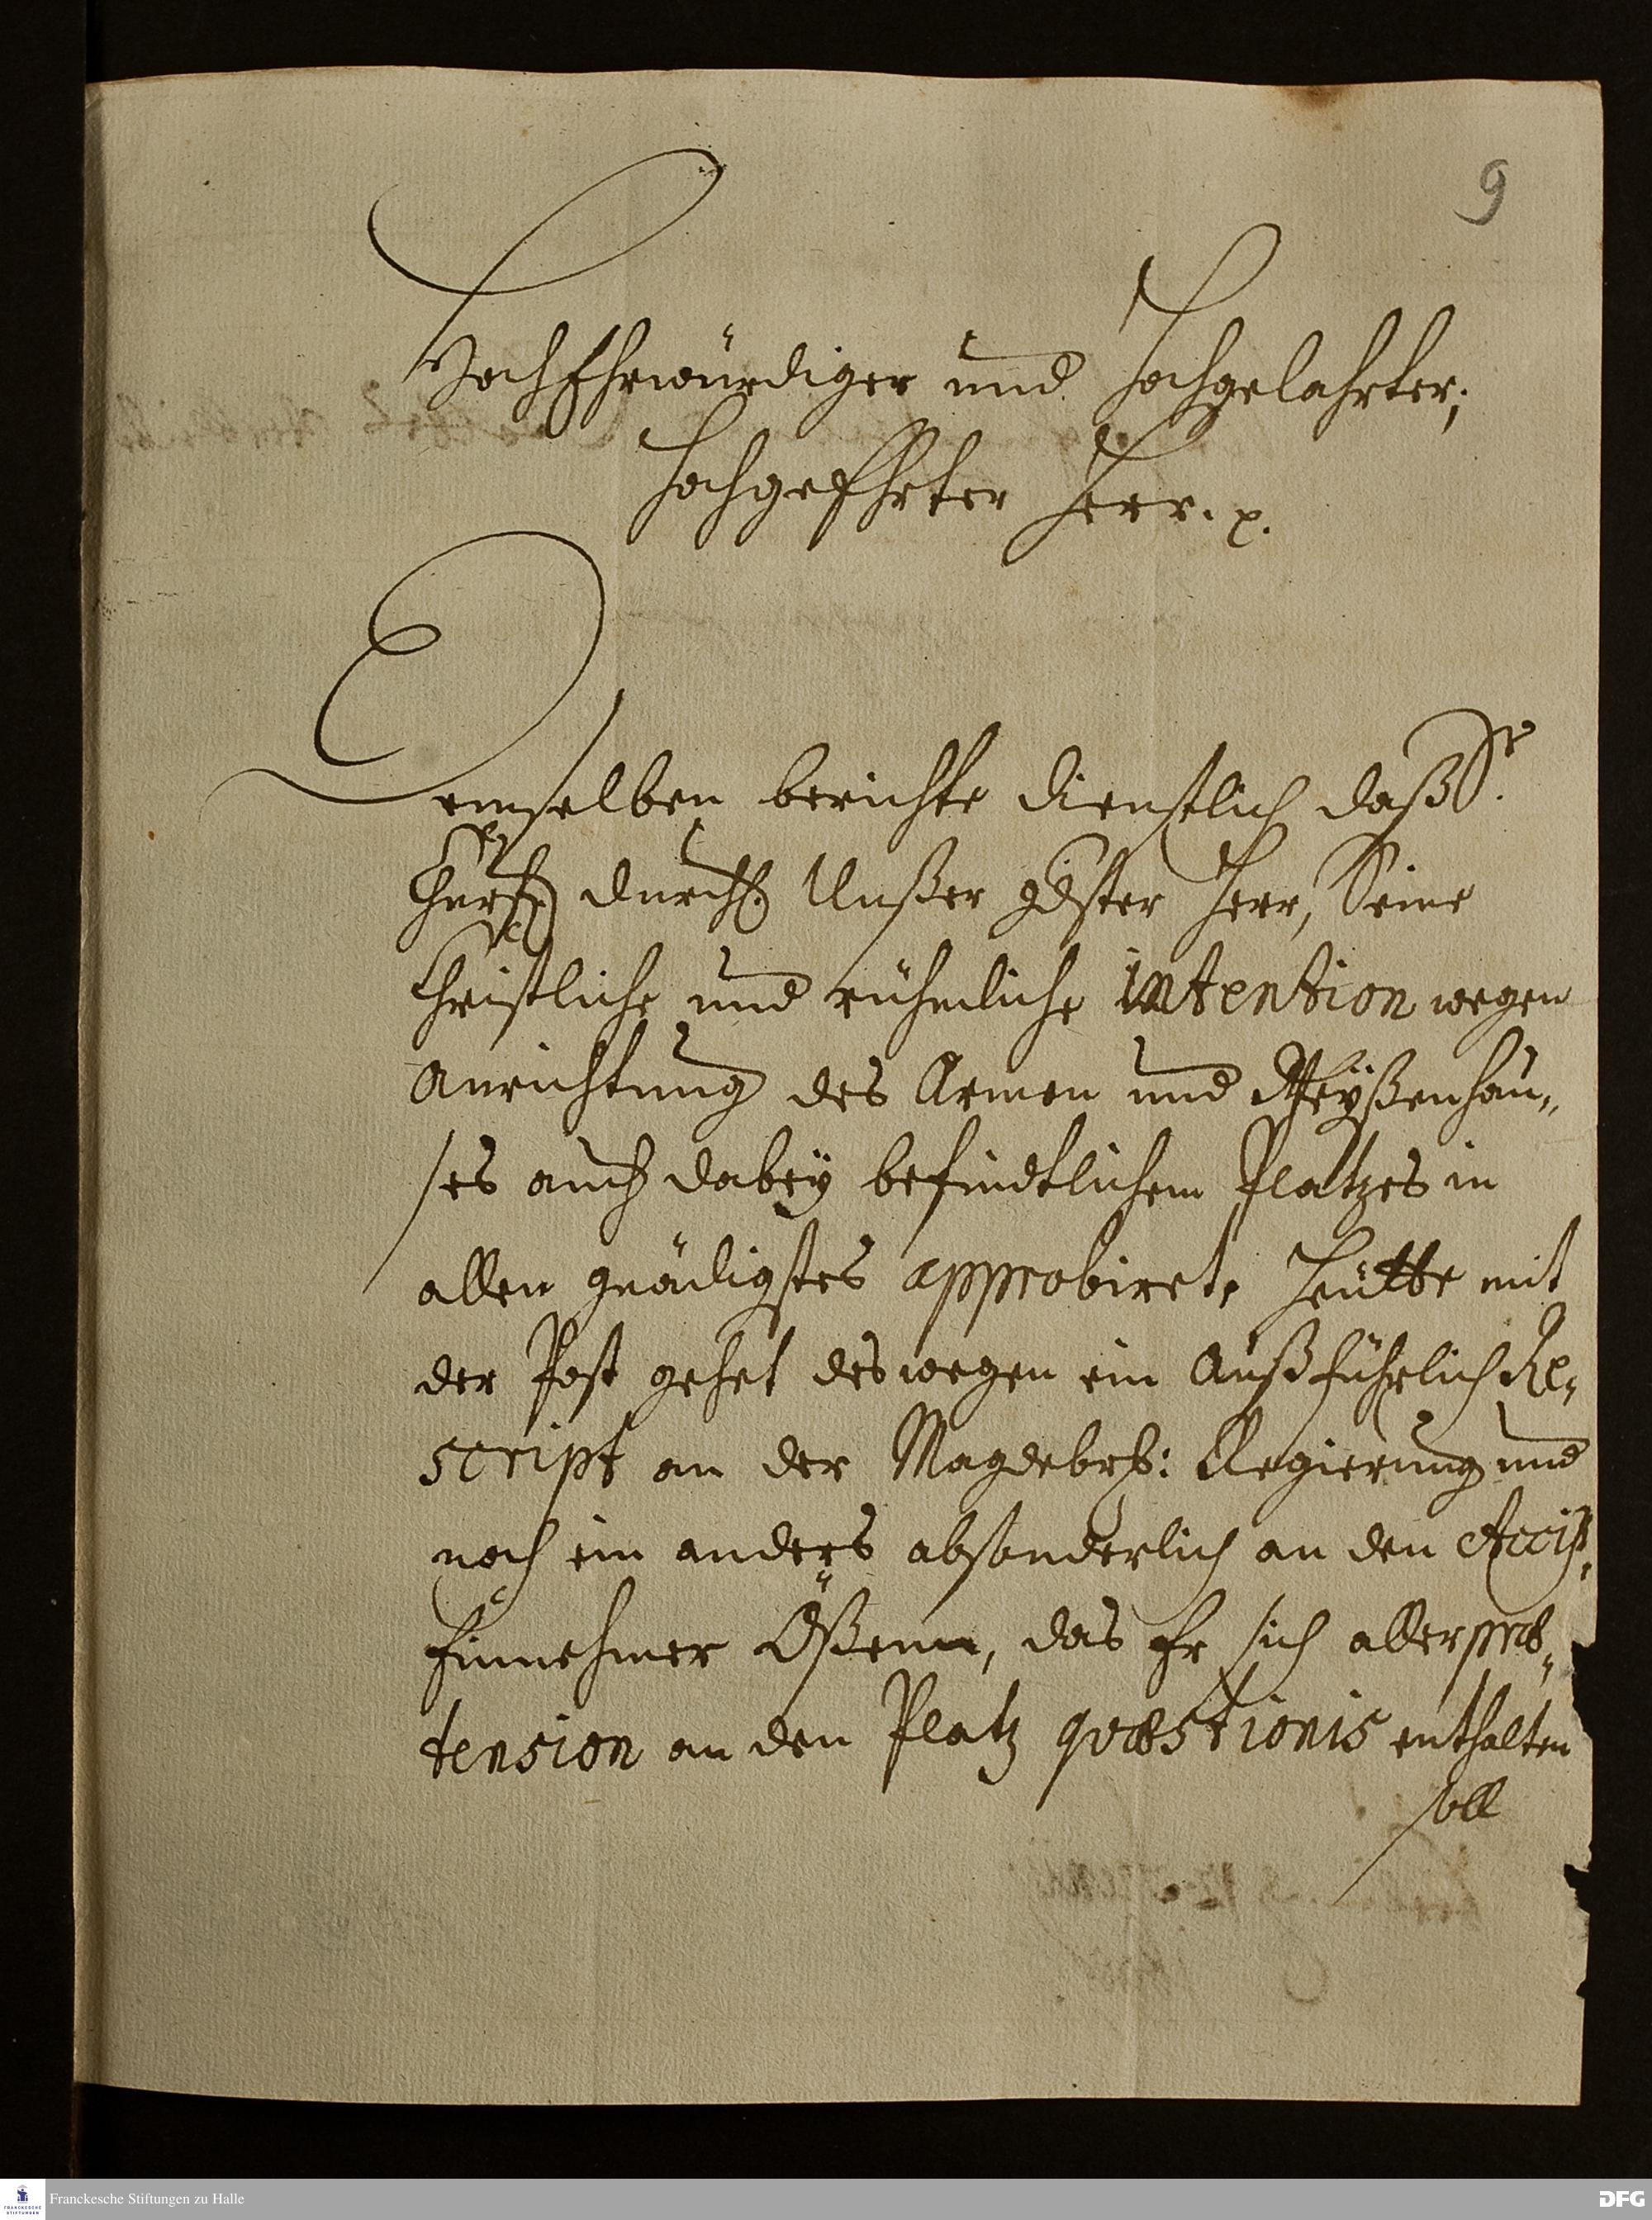 9
HochEhrwürdiger und Hochgelahrter,
HochgeEhrter Herr. p.
Demselben berichte dienstlich daß Se.
Churf. Durchl. Unßer gdster Herr, Seine
Christliche und rühmliche intention wegen
Anrichtung des Armen und Weyßenhau„
ses auch dabey befindtlichem Platzes in
allen gnädigstes approbiret, Heutte mit
der Post gehet deswegen ein Außführlich Re„
script an der Magdebrg: Regierung und
noch ein anders absonderlich an den Acciß„
Einnehmer, das Er sich aller præ„
tension an den Platz quæstionis enthalten
soll
Franckesche Stiftungen zu Halle
DFG